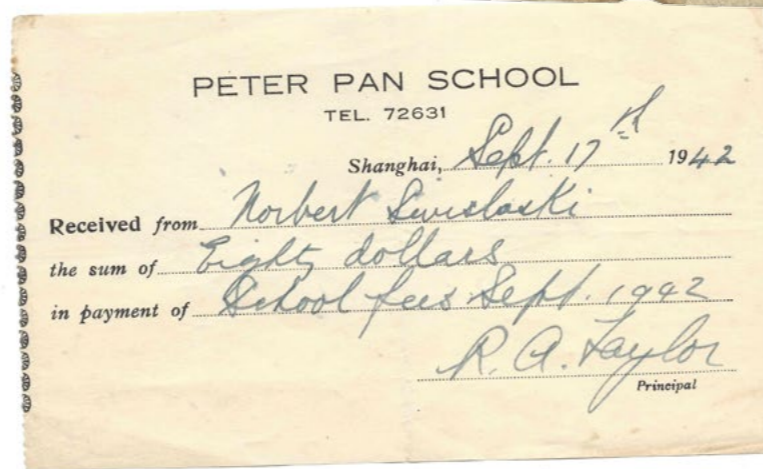 PETER PAN SCHOOL
TEL. 72631
Shanghai, Sept. 17th 1942
Received from Norbert
the sum of Eighty dollars
in payment of School fees Sept. 1942
R. A. Taylor
Principal